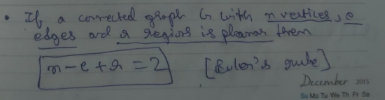 • If a connected graph G with n vertices, e
edges and r regions is planar then
n - e + r = 2 [Euler's rule]
December
Su Mo Tu We Th Fr Sa